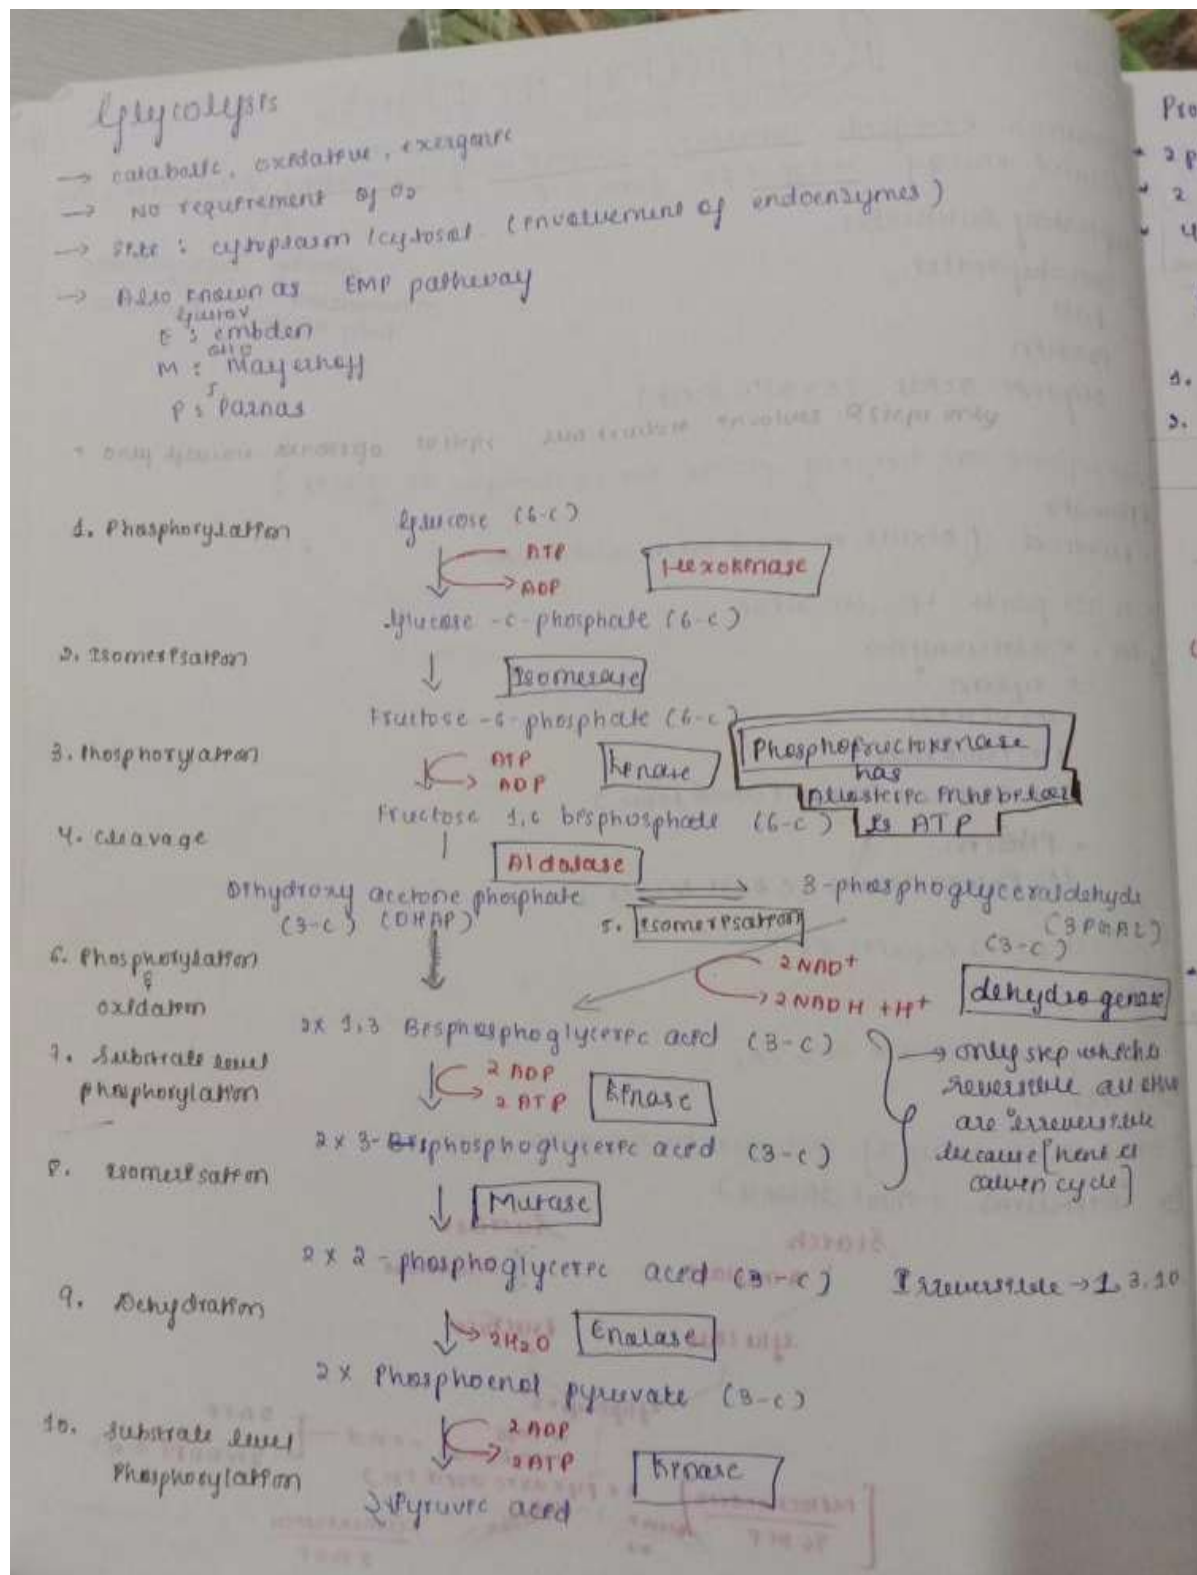 Glycolysis
→ catabolic, oxidative, exergonic
→ No requirement of O2
→ Site : cytoplasm /cytosol (involvement of endoenzymes)
→ Also known as EMP pathway
Gustov
E : embden
Otto
M : Mayerhoff
J
P : Parnas
* only glucose undergo 10 steps and fructose involves 9 steps only
1. Phosphorylation
Glucose (6-c)
ATP
ADP
Hexokinase
Glucose -6- phosphate (6-c)
2. Isomerisation
Isomerase
Fructose -6-phosphate (6-c)
3. Phosphorylation
ATP
ADP
kinase
Phosphofructokinase
has
Allosteric inhibitor
is ATP
Fructose 1,6 bisphosphate (6-c)
4. Cleavage
Aldolase
Dihydroxy acetone phosphate
(3-c) (DHAP)
3-phosphoglyceraldehyde
(3PGAL)
(3-c)
5. Isomerisation
6. Phosphorylation
&
oxidation
2NAD+
2NADH +H+
dehydrogenase
2x 1,3 Bisphosphoglyceric acid (3-c)
→ only step which is
reversible all other
are irreversible
because [hent
calvin cycle]
7. Substrate level
phosphorylation
2 ADP
2 ATP
Kinase
2 x 3-phosphoglyceric acid (3-c)
8. Isomerisation
Mutase
2 x 2-phosphoglyceric acid (3-c)
Irreversible → 1, 3, 10
9. Dehydration
2H2O
Enolase
2x Phosphoenol pyruvate (3-c)
10. Substrate level
Phosphorylation
2 ADP
2ATP
Kinase
2xPyruvic acid
Pro
2 p
2
4
1.
2.